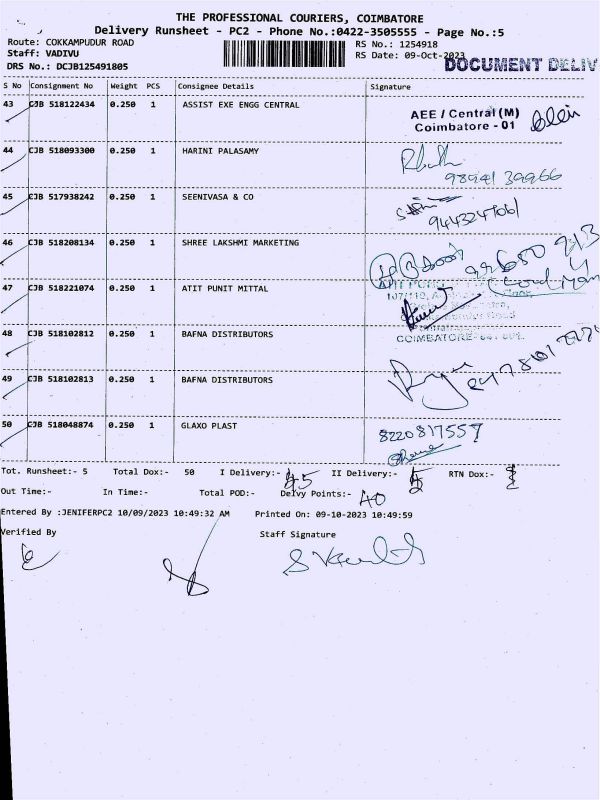 THE PROFESSIONAL COURIERS, COIMBATORE
Delivery Runsheet - PC2 - Phone No.:0422-3505555 - Page No.:5
Route: COKKAMPUDUR ROAD RS No.: 1254918
Staff: VADIVU RS Date: 09-Oct-2023
DRS No.: DCJB125491805 DOCUMENT DELIV
S No Consignment No Weight PCS Consignee Details Signature
43 CJB 518122434 0.250 1 ASSIST EXE ENGG CENTRAL
AEE / Central (M)
Coimbatore - 01
44 CJB 518093300 0.250 1 HARINI PALASAMY
98941 39966
45 CJB 517938242 0.250 1 SEENIVASA & CO
46 CJB 518208134 0.250 1 SHREE LAKSHMI MARKETING
47 CJB 518221074 0.250 1 ATIT PUNIT MITTAL
48 CJB 518102812 0.250 1 BAFNA DISTRIBUTORS
COIMBATORE
49 CJB 518102813 0.250 1 BAFNA DISTRIBUTORS
50 CJB 518048874 0.250 1 GLAXO PLAST
8220817557
Tot. Runsheet:- 5 Total Dox:- 50 I Delivery:- 45 II Delivery:- RTN Dox:-
Out Time:- In Time:- Total POD:- Delvy Points:- 40
Entered By :JENIFERPC2 10/09/2023 10:49:32 AM Printed On: 09-10-2023 10:49:59
Verified By Staff Signature